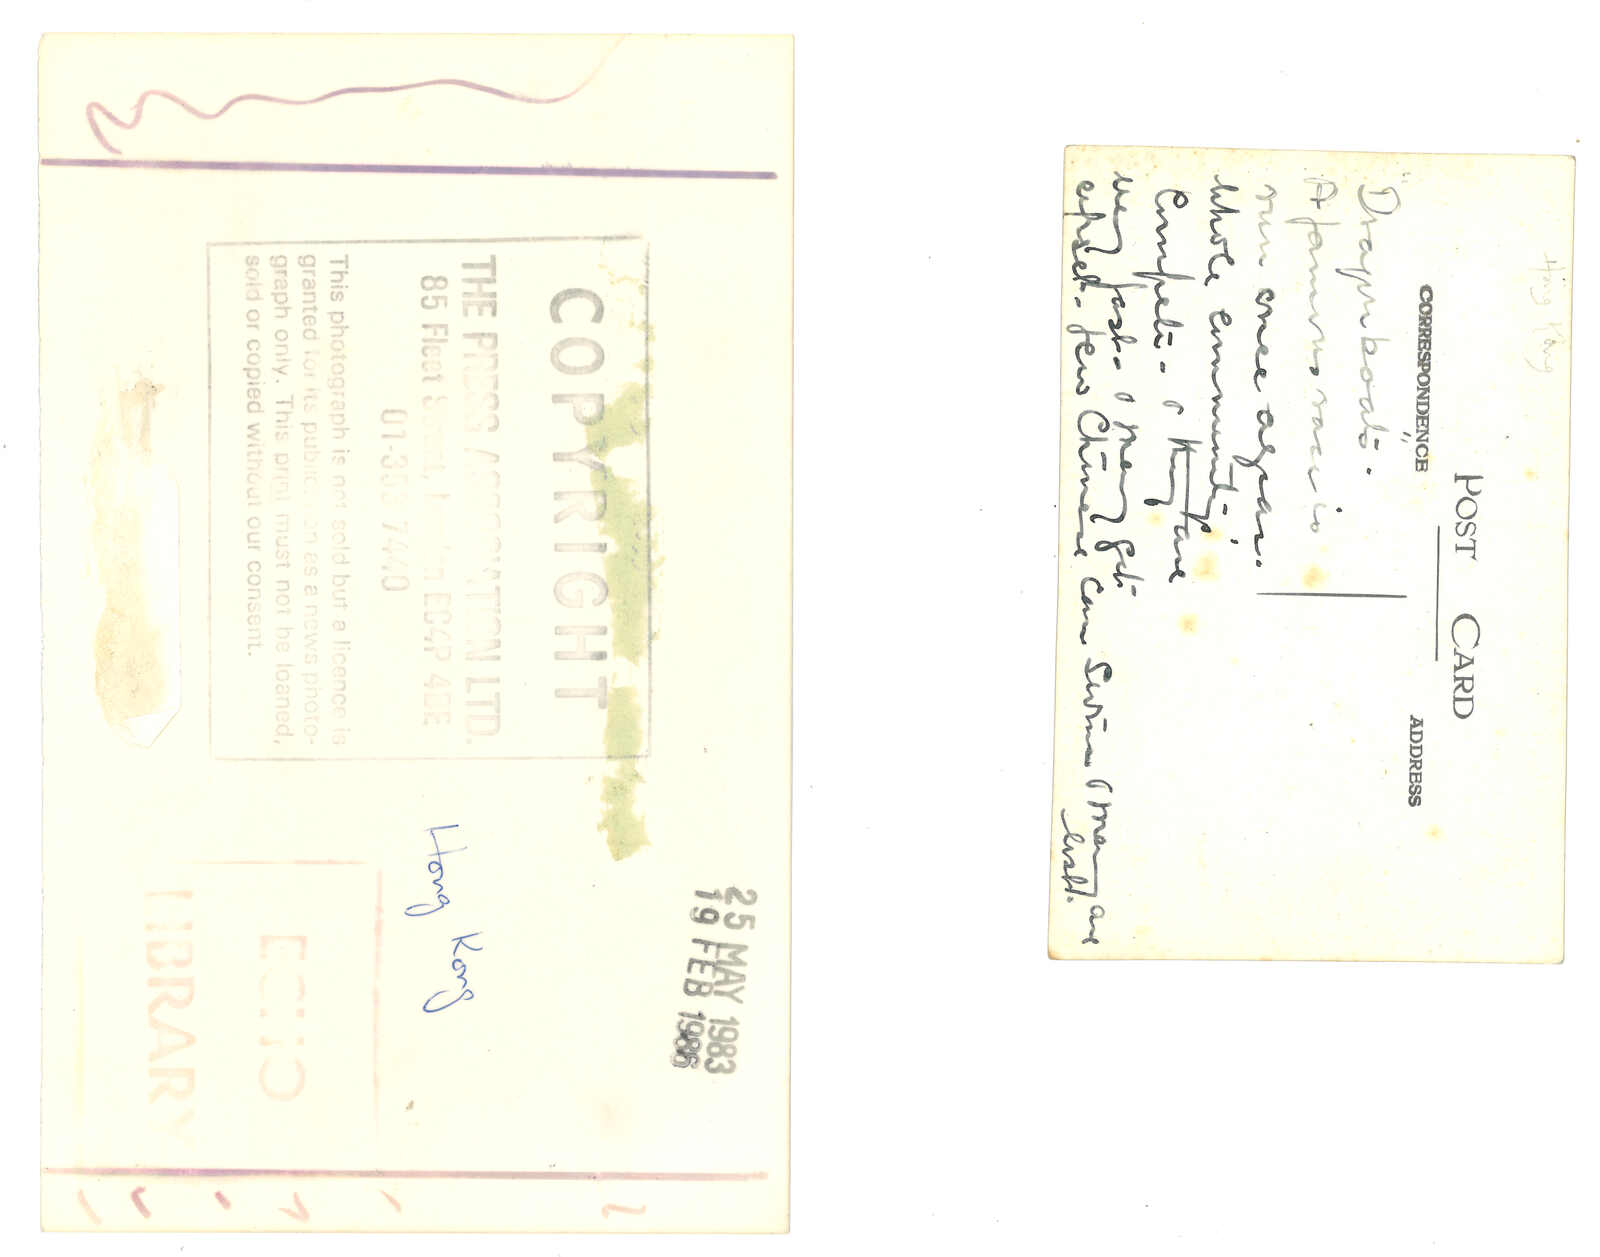 COPYRIGHT
THE PRESS ASSOCIATION LTD.
85 Fleet Street, London EC4P 4BE
01-353 7440
This photograph is not sold but a licence is
granted for its publication as a news photo-
graph only. This print must not be loaned,
sold or copied without our consent.
Hong Kong
25 MAY 1983
19 FEB 1986
ECHO
LIBRARY
Hong Kong
POST CARD
CORRESPONDENCE
ADDRESS
"Dragon boat".
A famous race is
run once a year.
Whole community
Compete. & they are
very fast & many get
upset. few Chinese can swim & many are
lost.